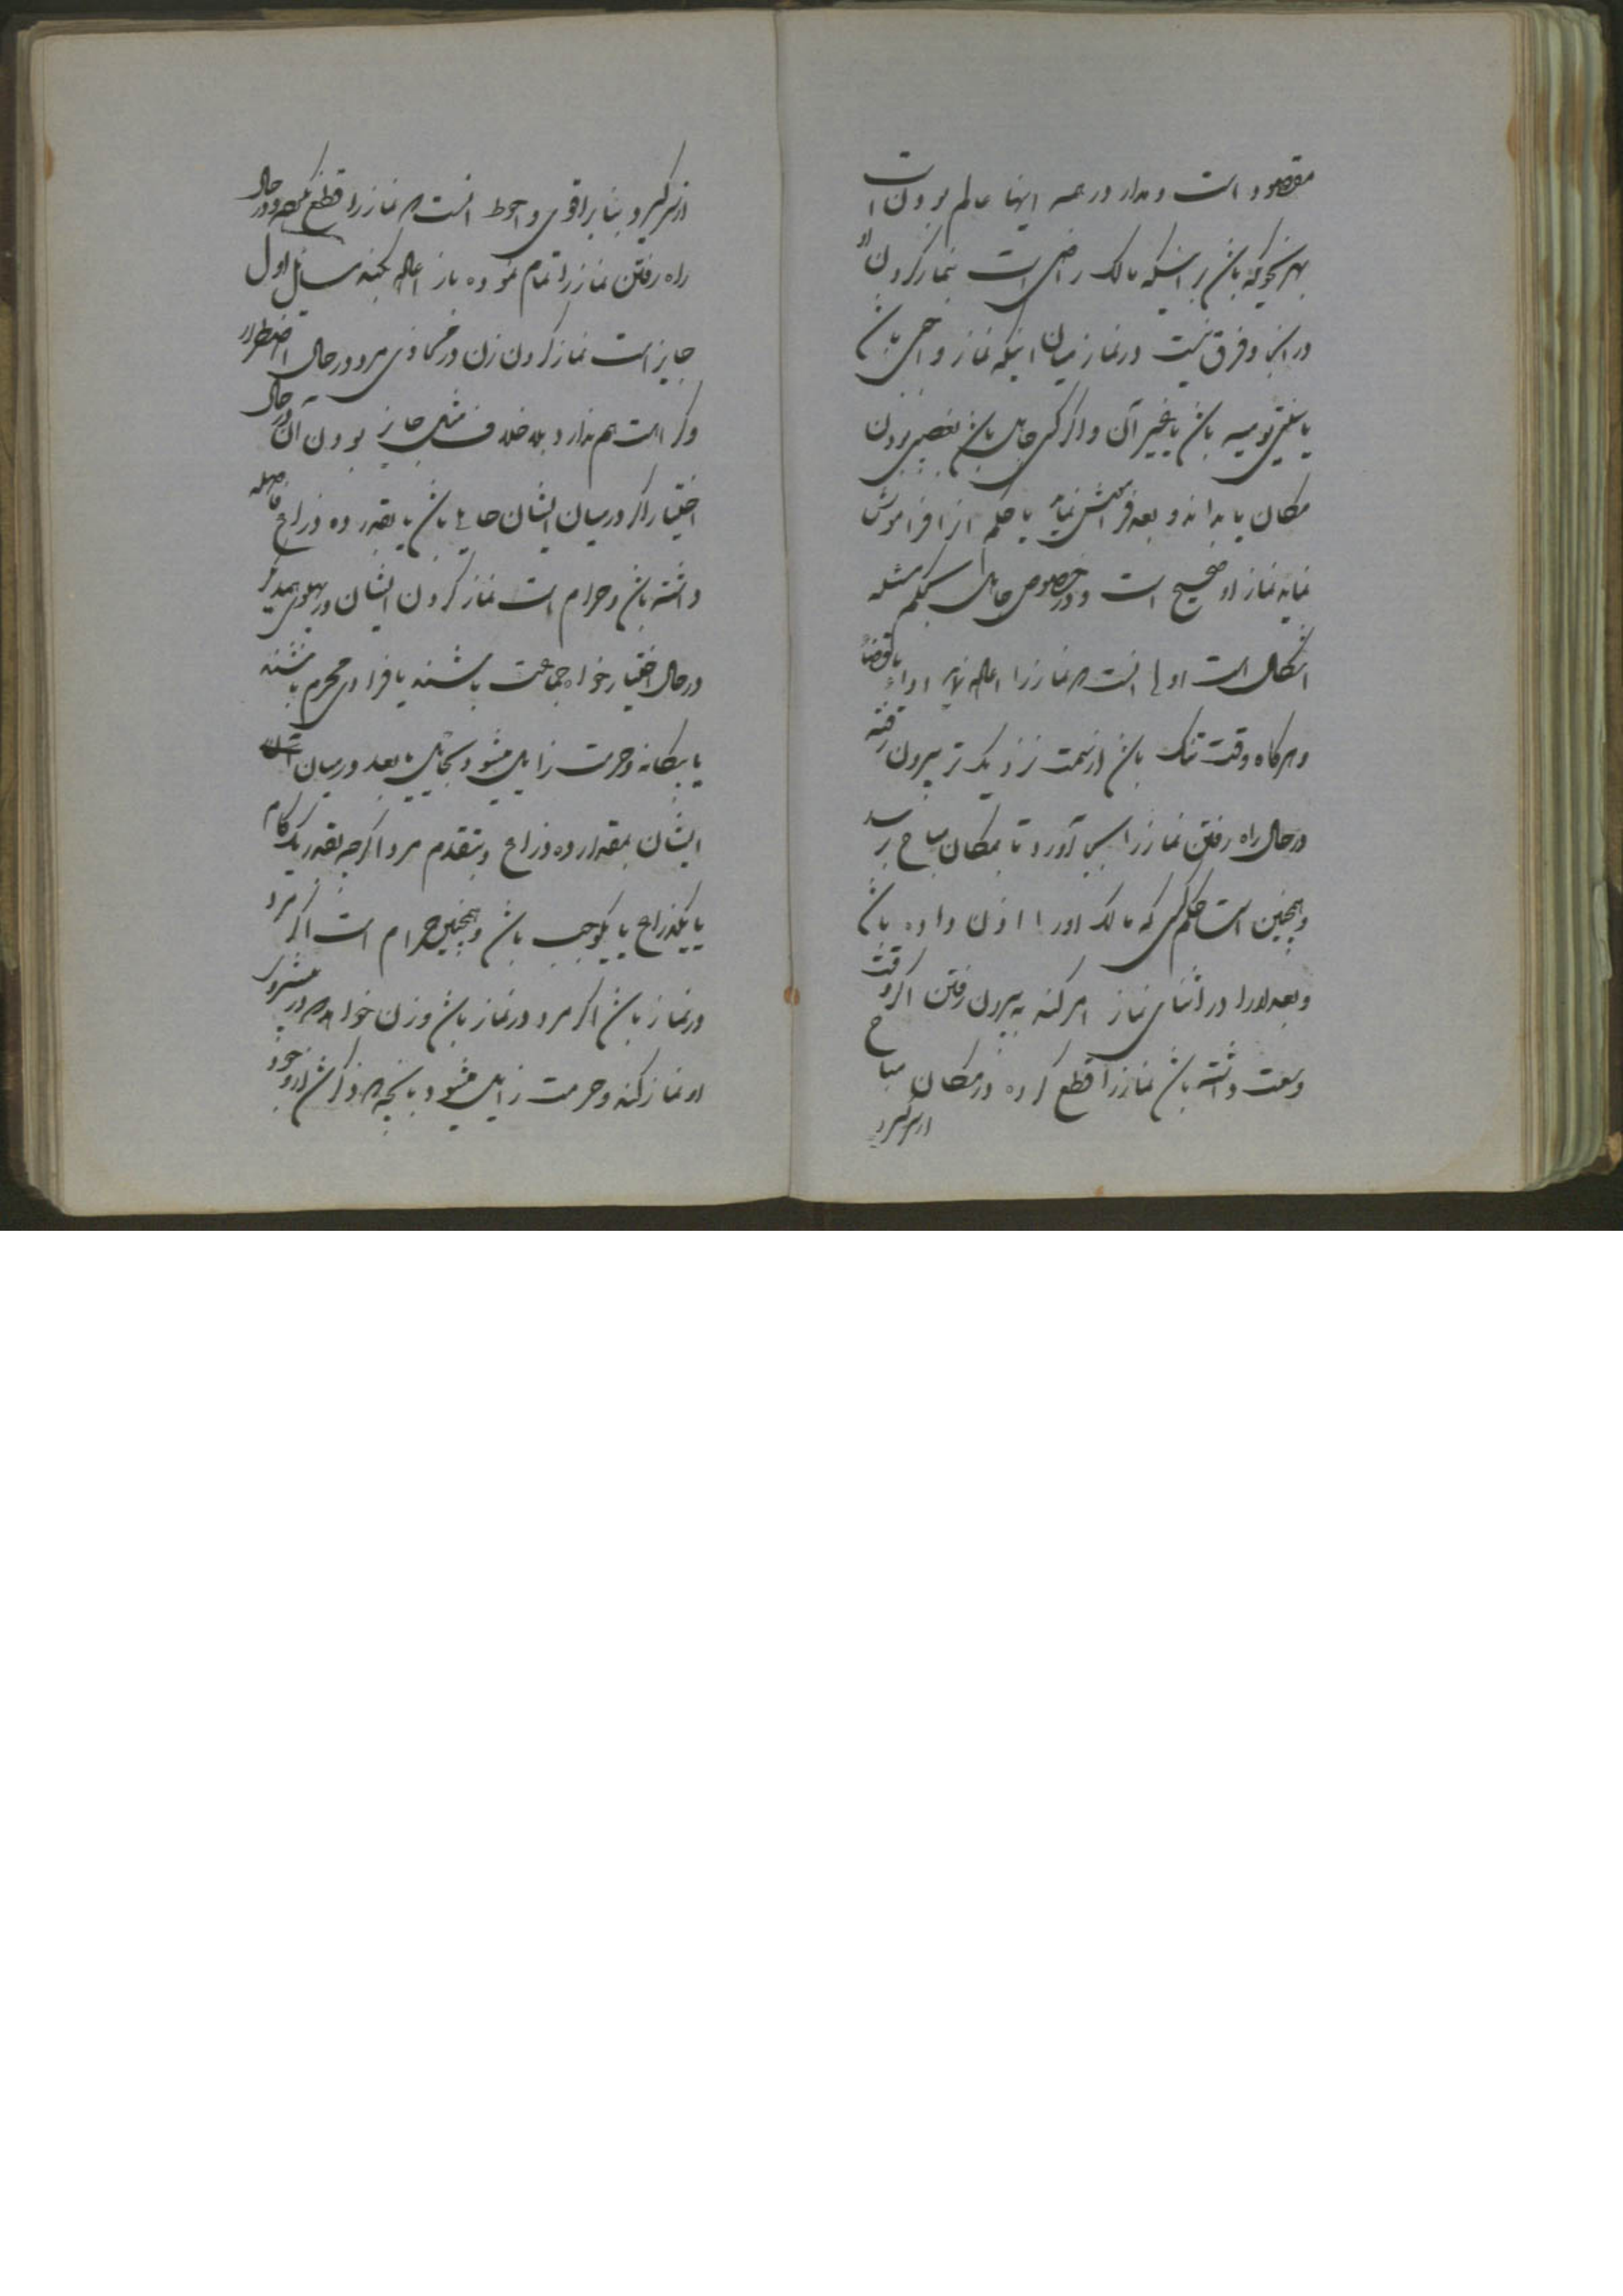 مقصود است و مدار در همه اینها عالم بودن است
بهر نحو که باشد بر اینکه مالک راضی است بنماز کردن او
در انجا و فرق نیست در نماز میان اینکه نماز واجبی باشد
یا سنتی یومیه باشد یا غیر آن و اگر کسی جاهل باشد بغصبی بودن
مکان یا بداند و بعد فراموش نماید یا حکم آنرا فراموش
نماید نماز او صحیح است و در خصوص جاهل بحکم مسئله
اشکال است اولی انست که نماز را اعاده نماید اداءً یا قضاءً
و هر کاه وقت تنک باشد از سمت نزدیک تر بیرون رفته
در حال راه رفتن نماز را بجا آورد تا بمکان مباح رسد
و همچنین است حکم کسی که مالک اورا اذن داده باشد
و بعد اورا در اثنای نماز امر کند به بیرون رفتن اکر وقت
وسعت داشته باشد نماز را قطع کرده در مکان مباح
از سر کیرد
از سر کیرد و بنا بر اقوی و احوط انست که نماز را قطع نکرده و در حال
راه رفتن نماز را تمام نموده باز اعاده بکند مسائل اول
جایز است نماز کردن زن در محاذی مرد در حال اضطرار
و کراهت هم ندارد بلا خلاف مثل جایز بودن آن در حال
اختیار اکر در میان ایشان حایلی باشد یا بقدر ده ذراع فاصله
داشته باشد و حرام است نماز کردن ایشان در پهلوی همدیکر
در حال اختیار خواه جماعت باشند یا فرادی محرم باشند
یا بیکانه و حرمت زایل میشود بحایل یا بعد در میان
ایشان بمقدار ده ذراع و بتقدم مرد اکرچه بقدر یک کام
یا یکذراع یا یکوجب باشد و همچنین حرام است اکر مرد
در نماز باشد اکر مرد در نماز باشد و زن خواهد در پیش روی
او نماز کند و حرمت زایل میشود بانچه که ذکرش